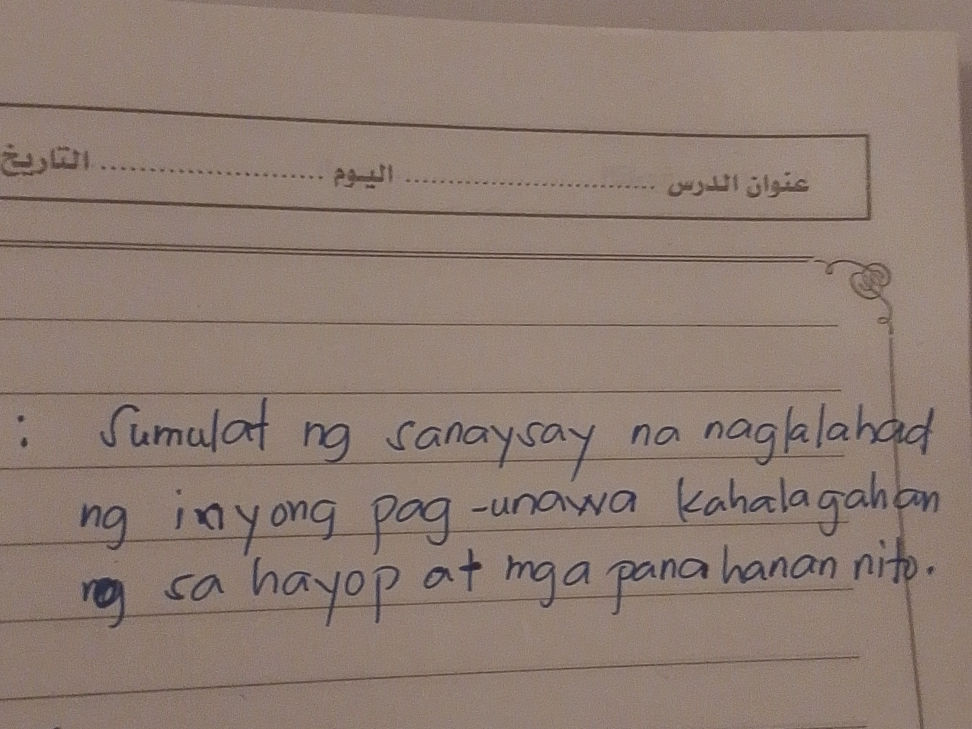 عنوان الدرس ........................... اليوم ........................ التاريخ
: Sumulat ng sanaysay na naglalahad
ng inyong pag-unawa kahalagahan
ng sa hayop at mga panahanan nito.